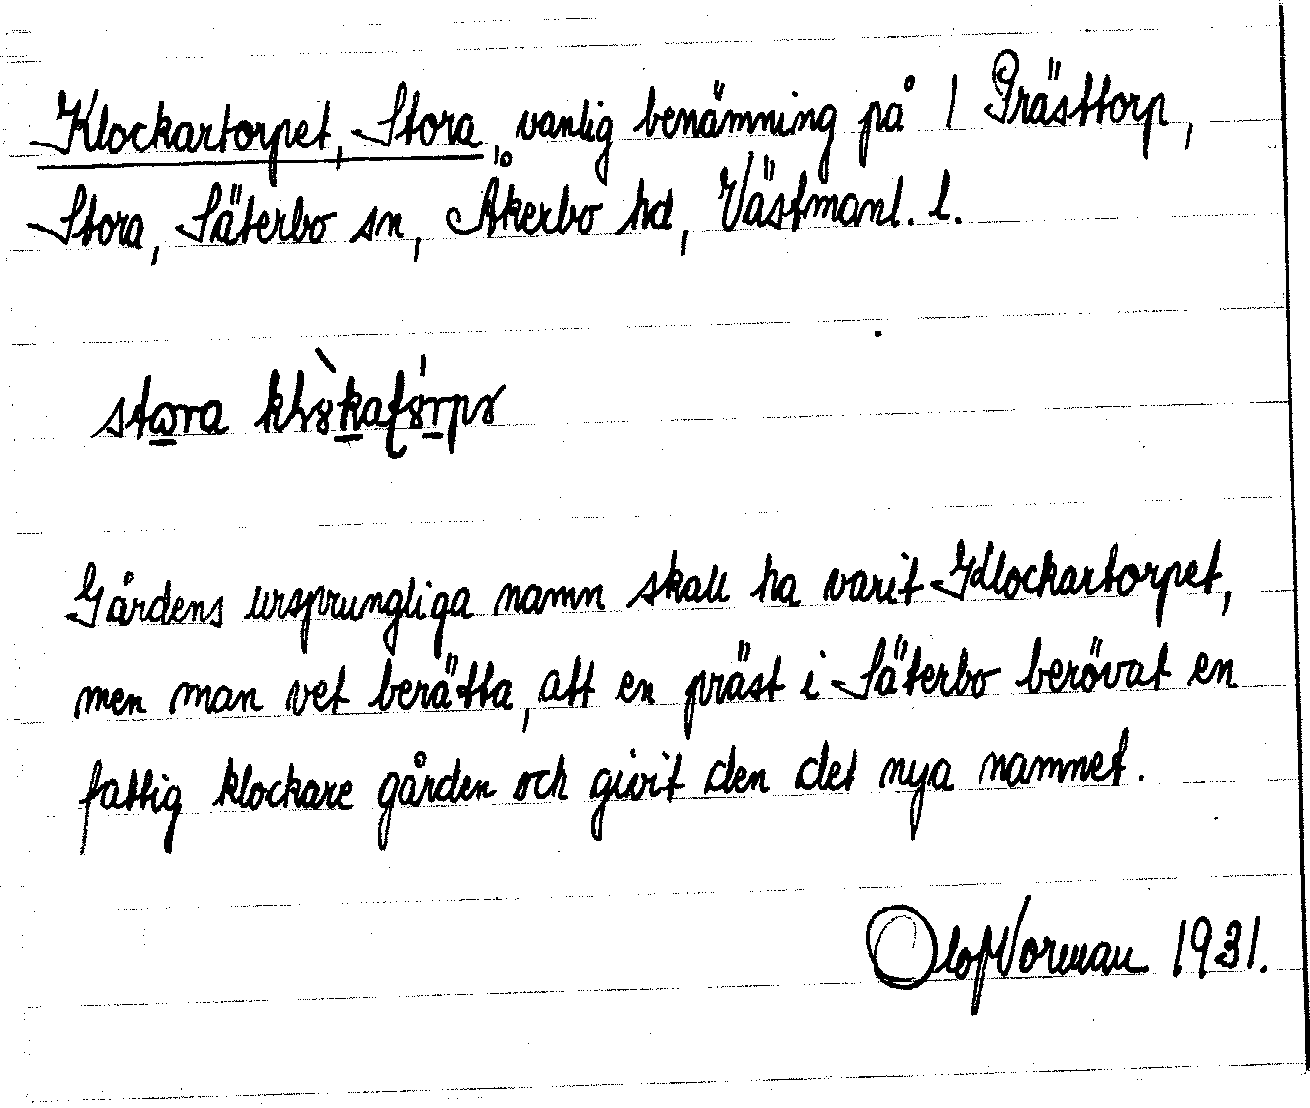 Klockartorpet, Stora, vanlig benämning på 1 Prästtorp,
Stora, Säterbo sn, Åkerbo hd, Västmanl. l.
stora
Gårdens ursprungliga namn skall ha varit Klockartorpet,
men man vet berätta, att en präst i Säterbo berövat en
fattig klockare gården och givit den det nya namnet.
Olof Norman 1931.